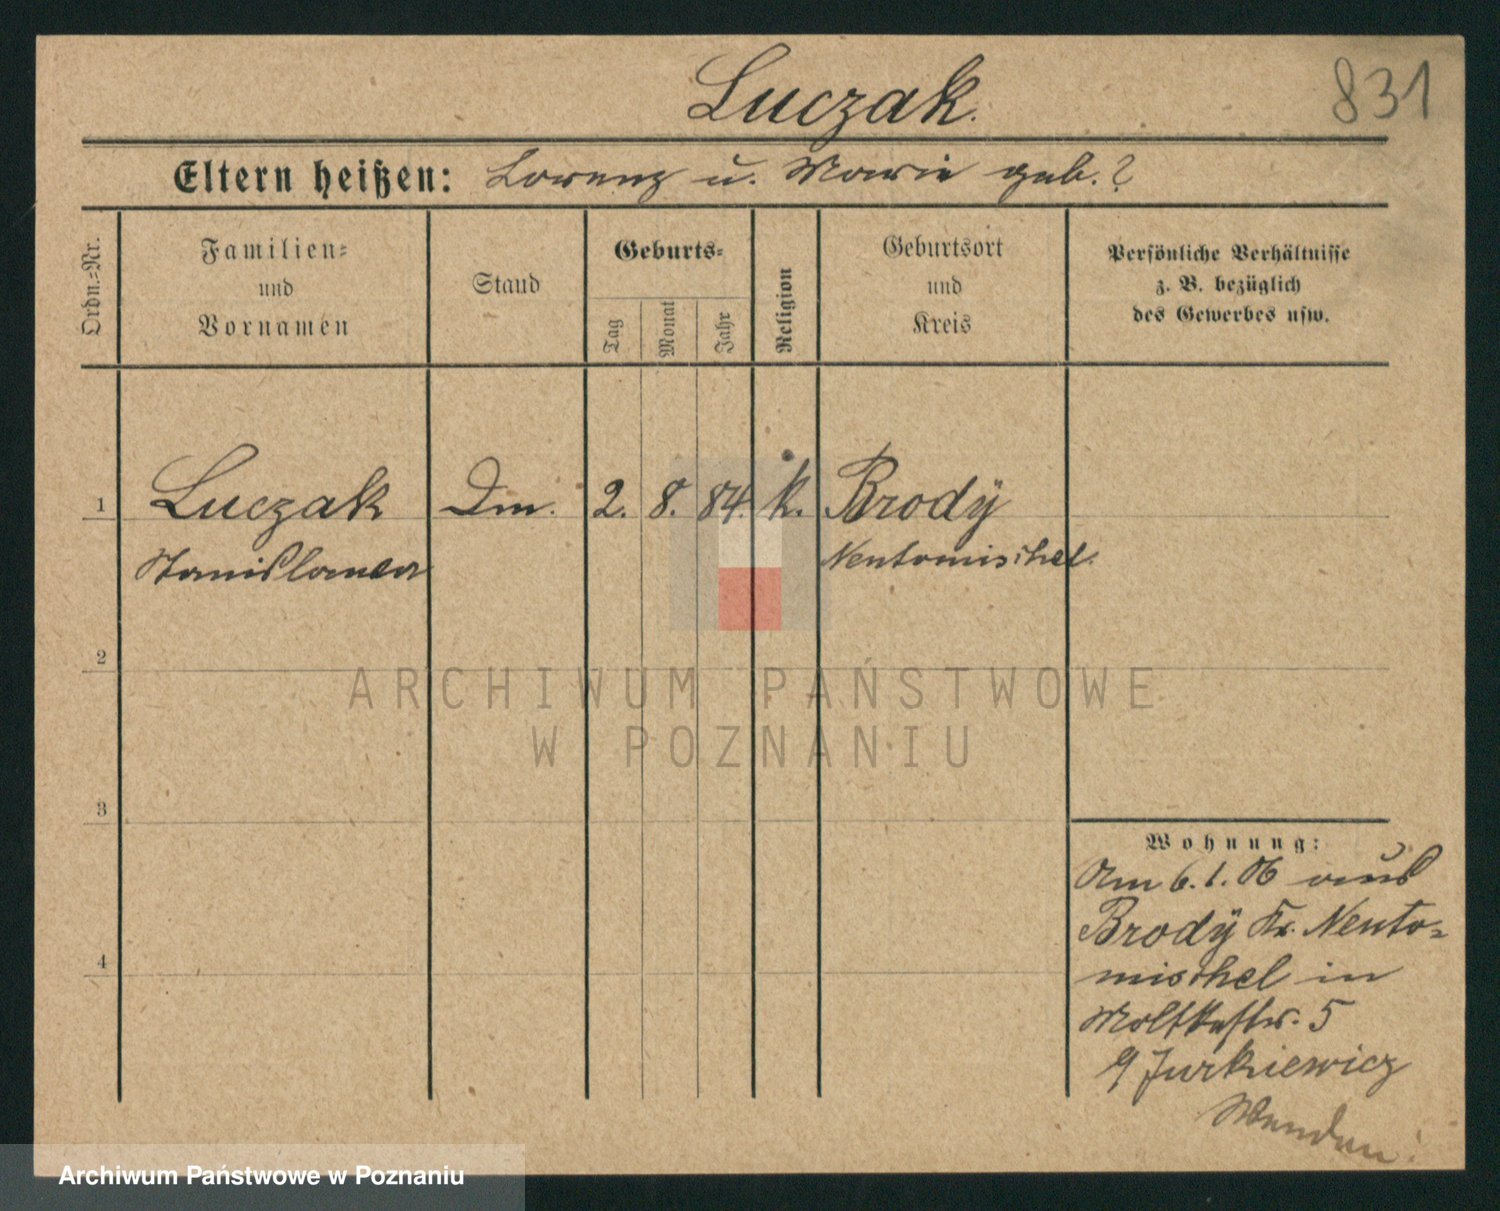 Luczak.
831
Eltern heißen: Lorenz u. Marie geb. ?
Ordn.-Nr.
Familien-
und
Vornamen
Stand
Geburts-
Tag
Monat
Jahr
Religion
Geburtsort
und
Kreis
Persönliche Verhältnisse
z. B. bezüglich
des Gewerbes usw.
1 Luczak Dm. 2. 8. 84. k. Brody
Stanislawa Neutomischel.
2
ARCHIWUM PAŃSTWOWE
W POZNANIU
3
Wohnung:
Am 6.1.06 aus
Brody Kr. Neuto-
mischel in
4
Moltkestr. 5
Jurkiewicz
Wenden!
Archiwum Państwowe w Poznaniu